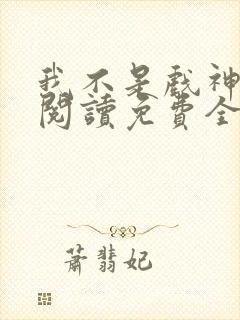 我不是戲神
閱讀免費全
蕭翡妃